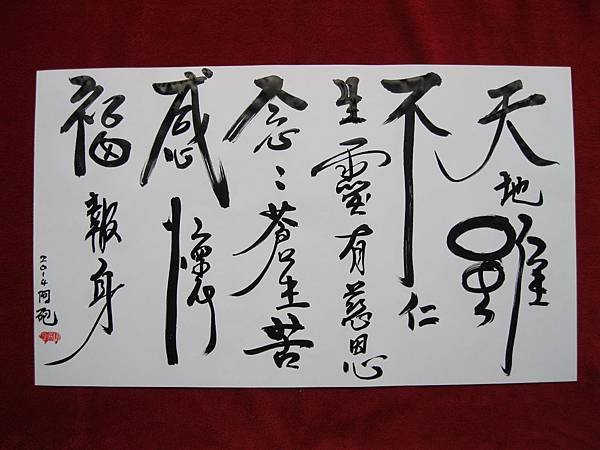 天地雖
不仁
生靈有慈恩
念〻蒼生苦
感懷
福報身
2014 阿砲